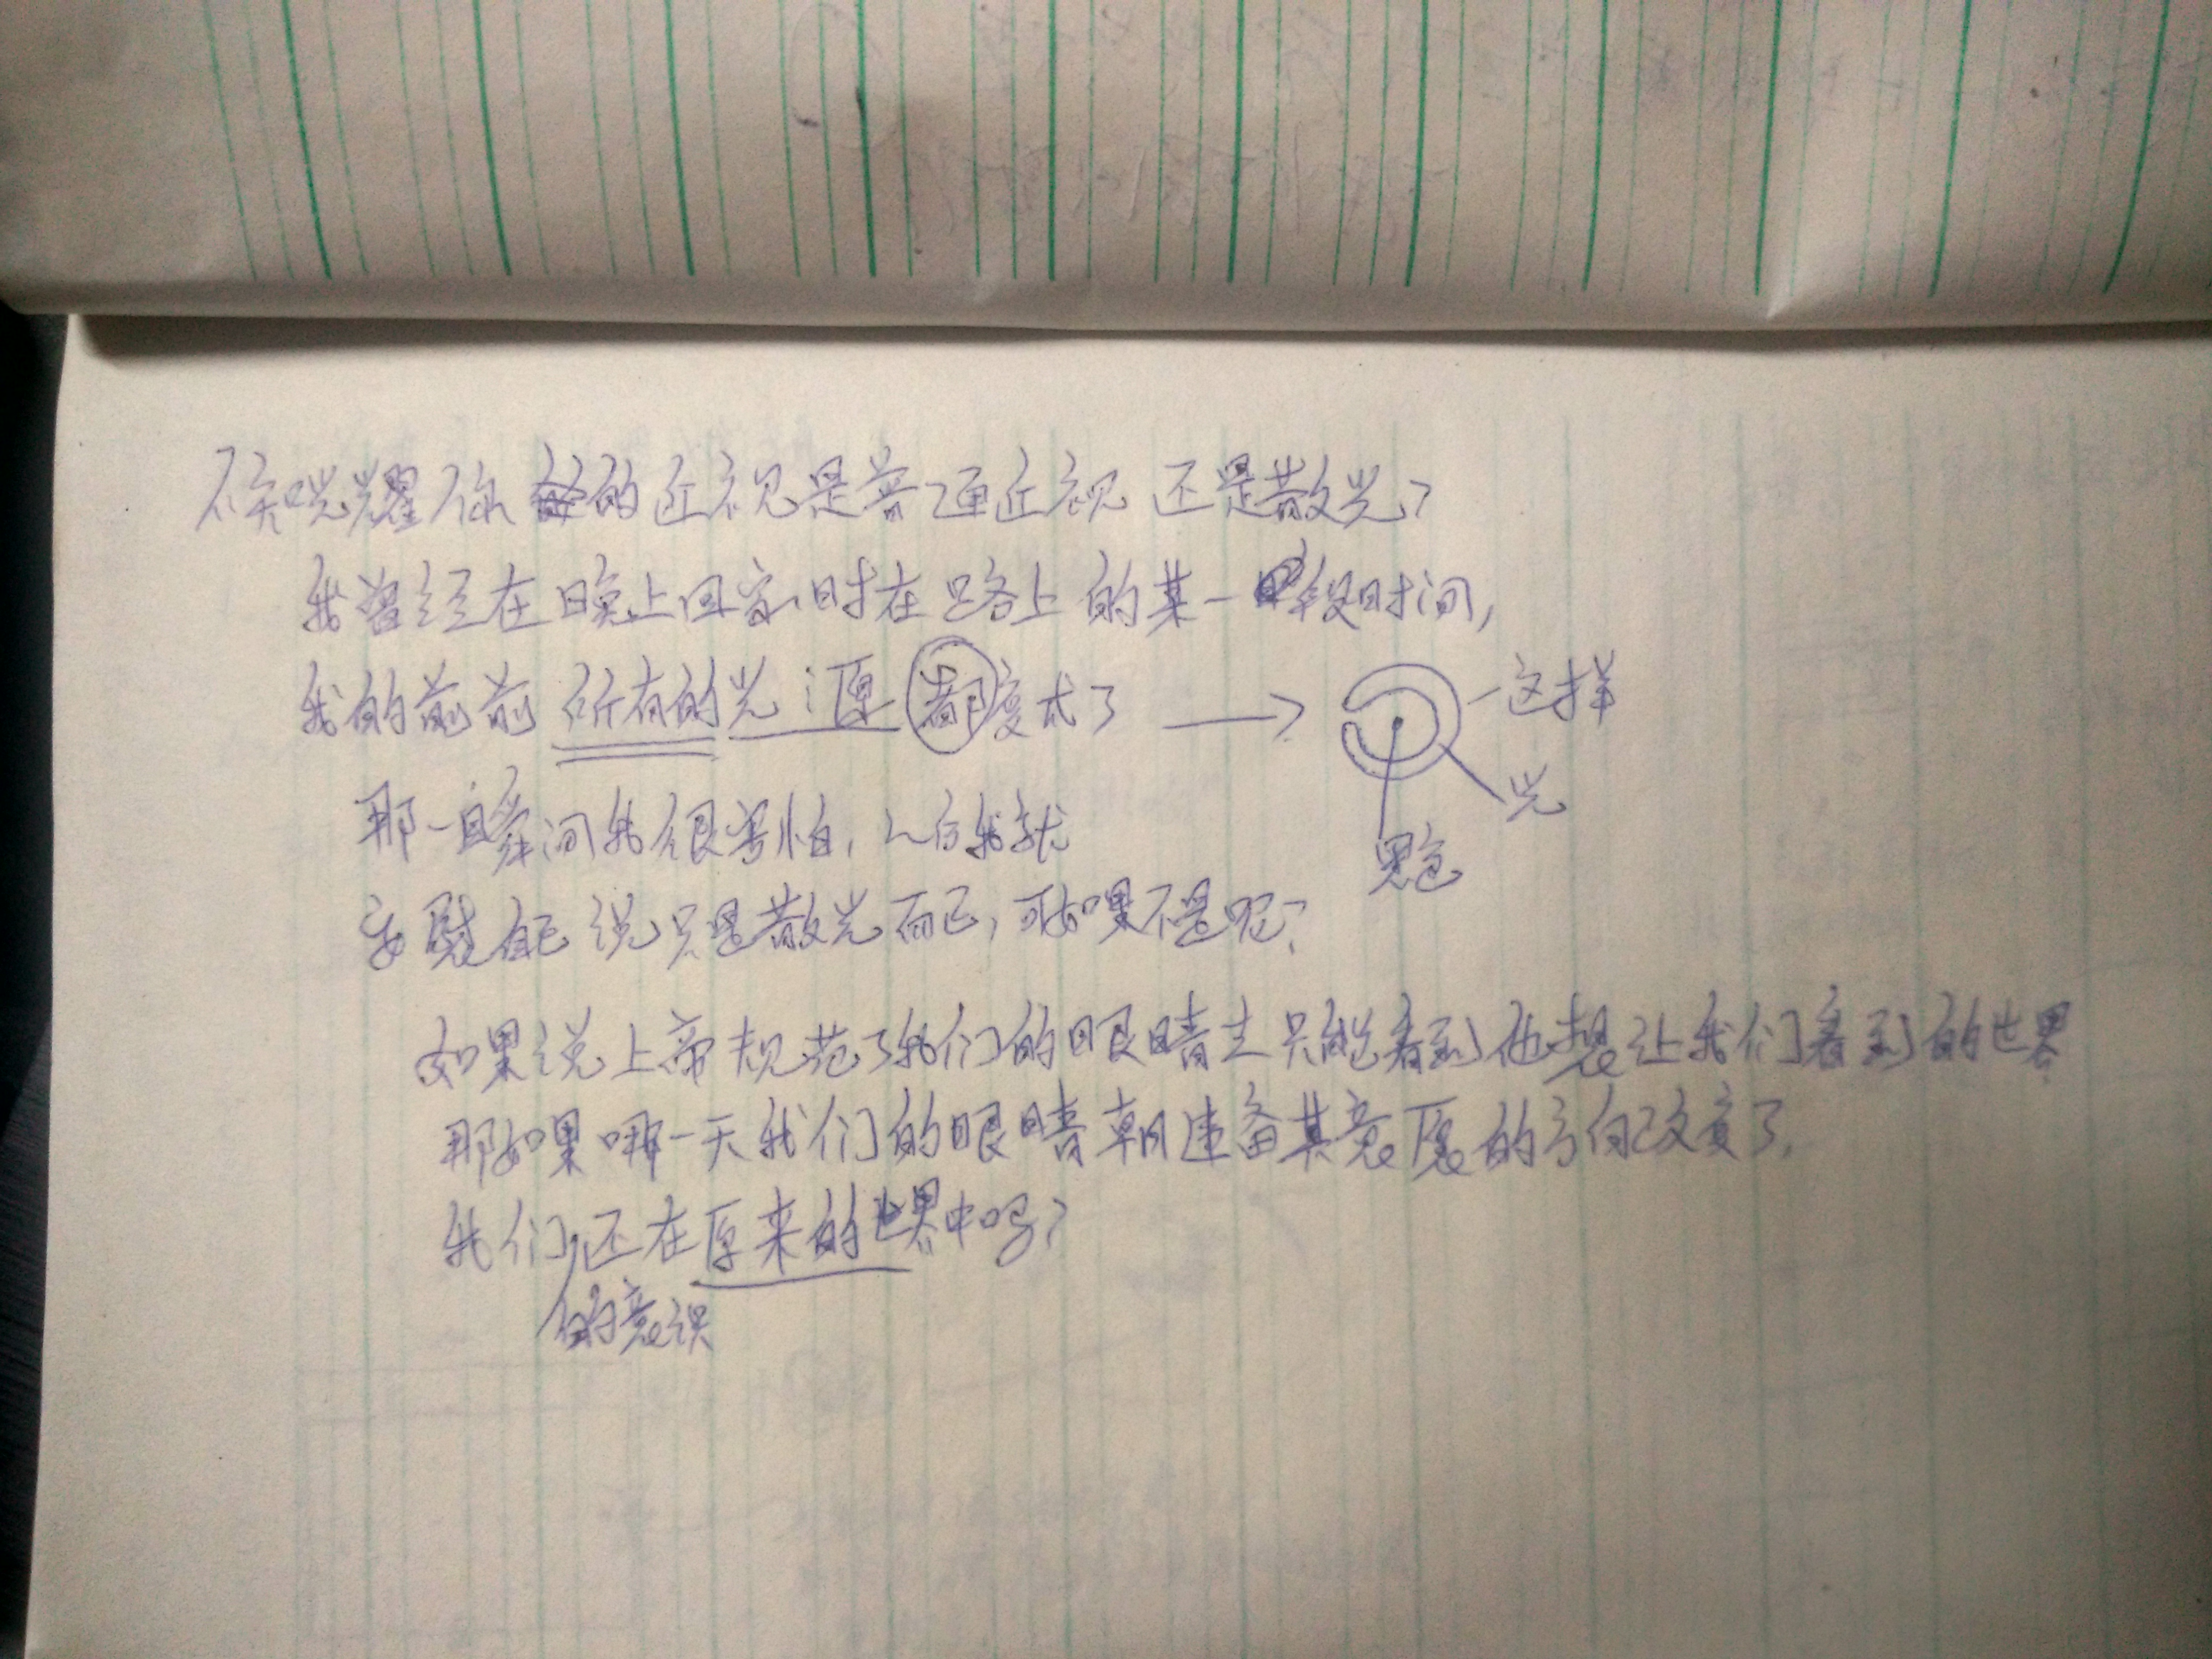 你的近视是普通近视还是散光?
我曾经在晚上回家时在路上的某一段时间,
我的前前所有的光源都变成了 → 这样
光
黑色
那一瞬间我很害怕,
安慰自己说只是散光而已,可如果不是呢?
如果说上帝规范了我们的眼睛 只能看到他想让我们看到的世界
那如果哪一天我们的眼睛朝违备其意愿的方向改变了.
我们还在原来的世界中吗?
的意识